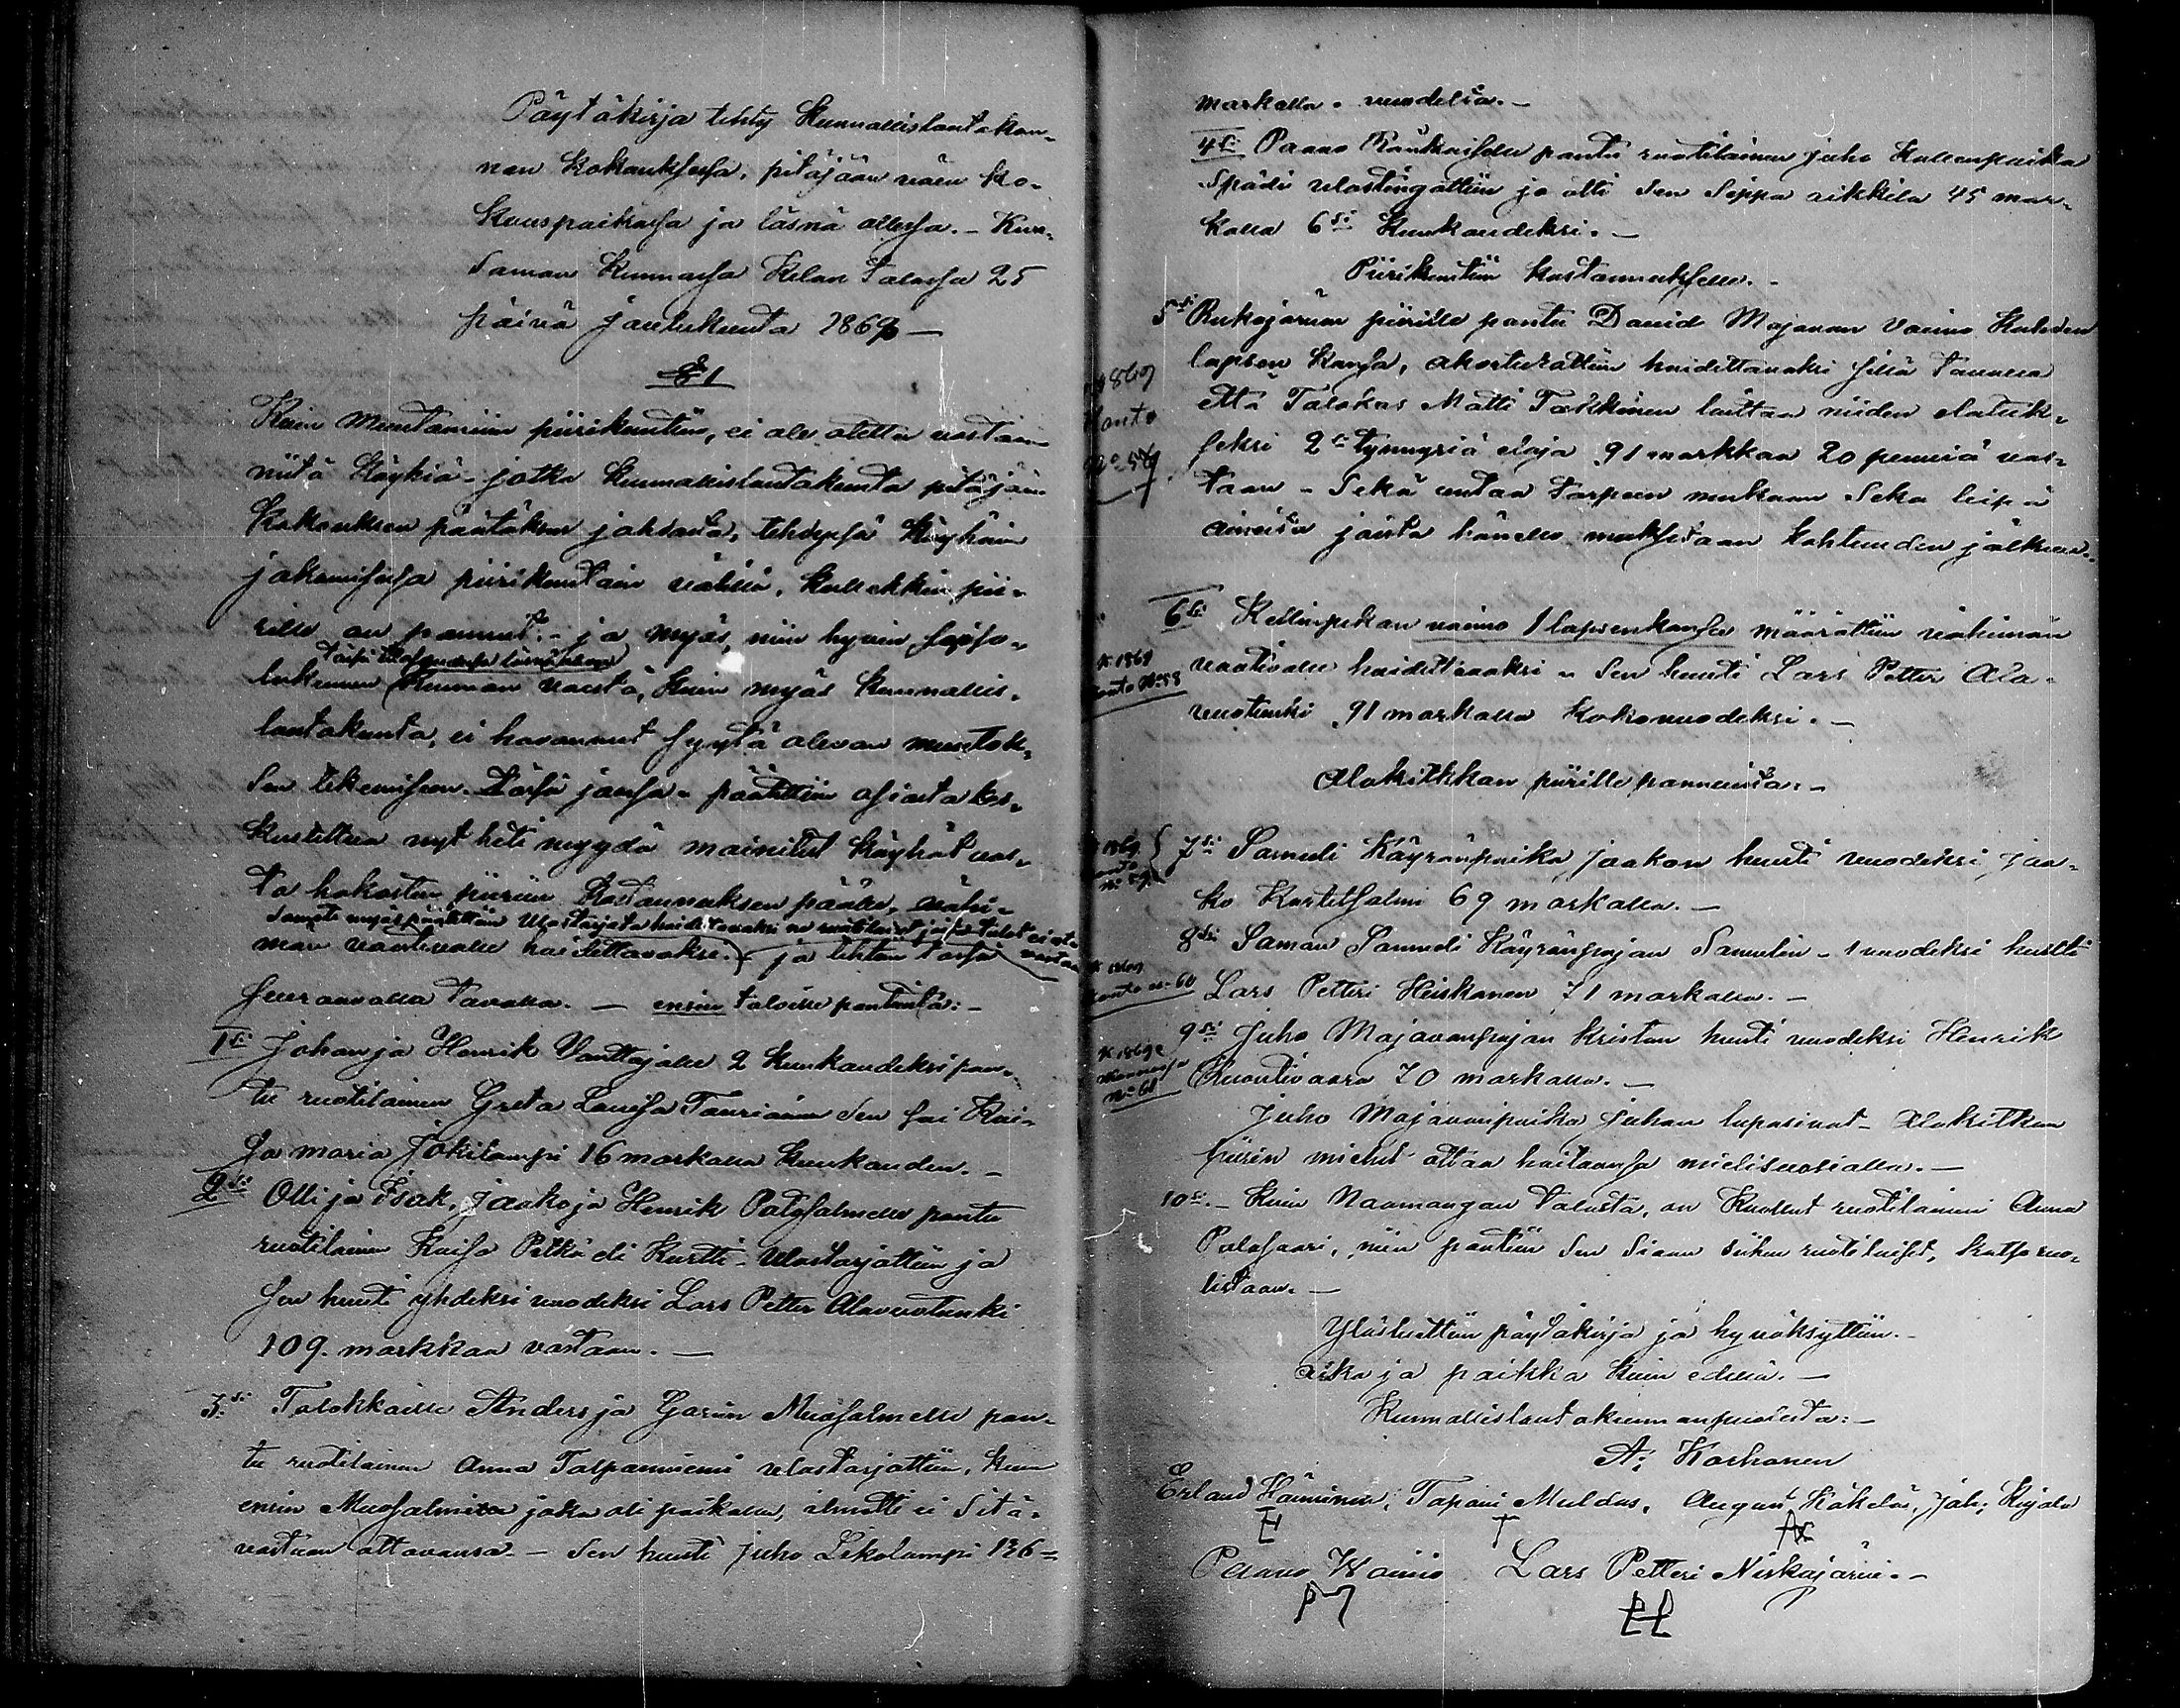 Päytäkirja tehty Kunnallislautakun-
nan Kokouksesa, pitäjään väen ko-
kouspaikassa ja läsnä ollessa. - Kuu-
saman Kunnassa Kelan Talossa 25
päivä Joulukuuta 1869 -
§ 1
Kuin Muutamiin piirikuntiin, ei ole otettu vastaan
niitä Köyhiä - jotka Kunnallislautakunta pitäjän
Kokouksen päätöksen johdosta, tehdyssä Köyhäin
jakamisessa piirikuntain välillä, kullekkin pii-
rille on pannut. - ja myös, niin hyvin
Kunnan väestö, kuin myös Kunnallis-
lautakunta, ei havannut syytä olevan muutok-
sen tekemiseen. Tässä jossa - päätettiin asiasta kes-
kusteltua nyt heti myydä mainitut Köyhät vas-
ta hakosten piirin Kustannuksen pääle, vähi-
Samate myös päätettiin Ulostarjota hoidettavaksi ne ruotilaiset joita talot ei ota vastaan
män vaativalle hoidettavakse. - ja tehtiin tässä
seuraavalla tavalla. - ensin taloille pantuita: -
1si Johan ja Henrik Vanttajalle 2 Kuukaudeksi pan-
tu ruotilainen Greta Lovisa Tauriainen Sen sai Kai-
sa maria Jokilampi 16 markalla Kuukauden. -
2si Olli ja Isak, Jaako ja Henrik Patosalmelle pantu
ruotilainen Kaisa Pitkä eli Kurtti - Ulostarjottiin ja
sen huuti yhdeksi vuodeksi Lars Petter Alavuotunki
109. markkaa vastaan. -
3si Talokkaille Anders ja Garin Muosalmelle pan-
tu ruotilainen Anna Talpanniemi ulostarjottiin, kuin
ensin Muosalmita joka oli paikalla, ilmotti ei Sitä
vastaan ottavansa. - Sen huuti Juho Likolampi 136 =
markalla. vuodelta. -
4si Paavo Ränkäiselle pantu ruotilainen Juho Kuleenpaikka
Spädi ulostingattiin jo otti Sen Seppa aikkila 45 mar-
kalla 6si Kuukaudeksi. -
Piirikuntiin Kustannuksella. -
5si Rukajärven piirille pantu David Majavan Vaimo Kahden
lapsen Kansa, akorteerattiin hoidettavaksi sillä tavalla
että Talokas Matti Takkinen lauttaa niiden elatuk-
seksi 2si tynnyriä eloja 91 markkaa 20 penniä vas-
taan - Sekä antaa tarpeen mukaan Seka leipä
aineista joista hänelle maksetaan kohtuuden jälkeen.
6si Kellinpukan vaimo 1 lapsenkansa määrättiin vähimän
vaativalle hoidettavaksi - Sen huuti Lars Petter Ala-
vuotunki 91 markalla Kokovuodeksi. -
Alakitkkan piirille pannuista: -
7si Samuli Käyränpaika Jaakon huuti vuodeksi, Jaa-
ko Kurtitsalmi 69 markalla. -
8si Saman Samuli Käyränpojan Samulin - 1 vuodeksi huuti
Lars Petteri Heiskanen 71 markalla. -
9si Juho Majavanpojan Kristan huuti vuodeksi Henrik
Kuontivaara 70 markalla. -
Juho Majavanpaika Juhan lupasivat - Alakitkan
piirin miehet ottaa hoitaansa mielisuosialla. -
10si. - Kuin Naamangan Talosta, on Kuollut ruotilainen Anna
Palosaari, niin pantiin Sen Siaan siihen ruotilaiset, katso ruo-
listaan. -
Ylösluettiin päytäkirja ja hyväksyttiin. -
aika ja paikka Kuin edellä. -
Kunnallislautakunnanpuolesta: -
A: Karhanen
Erland Hänninen, Tapani Muldus, August Käkelä, Joh: Kojola
Paavo Wainio Lars Petteri Nirkajärvi. -